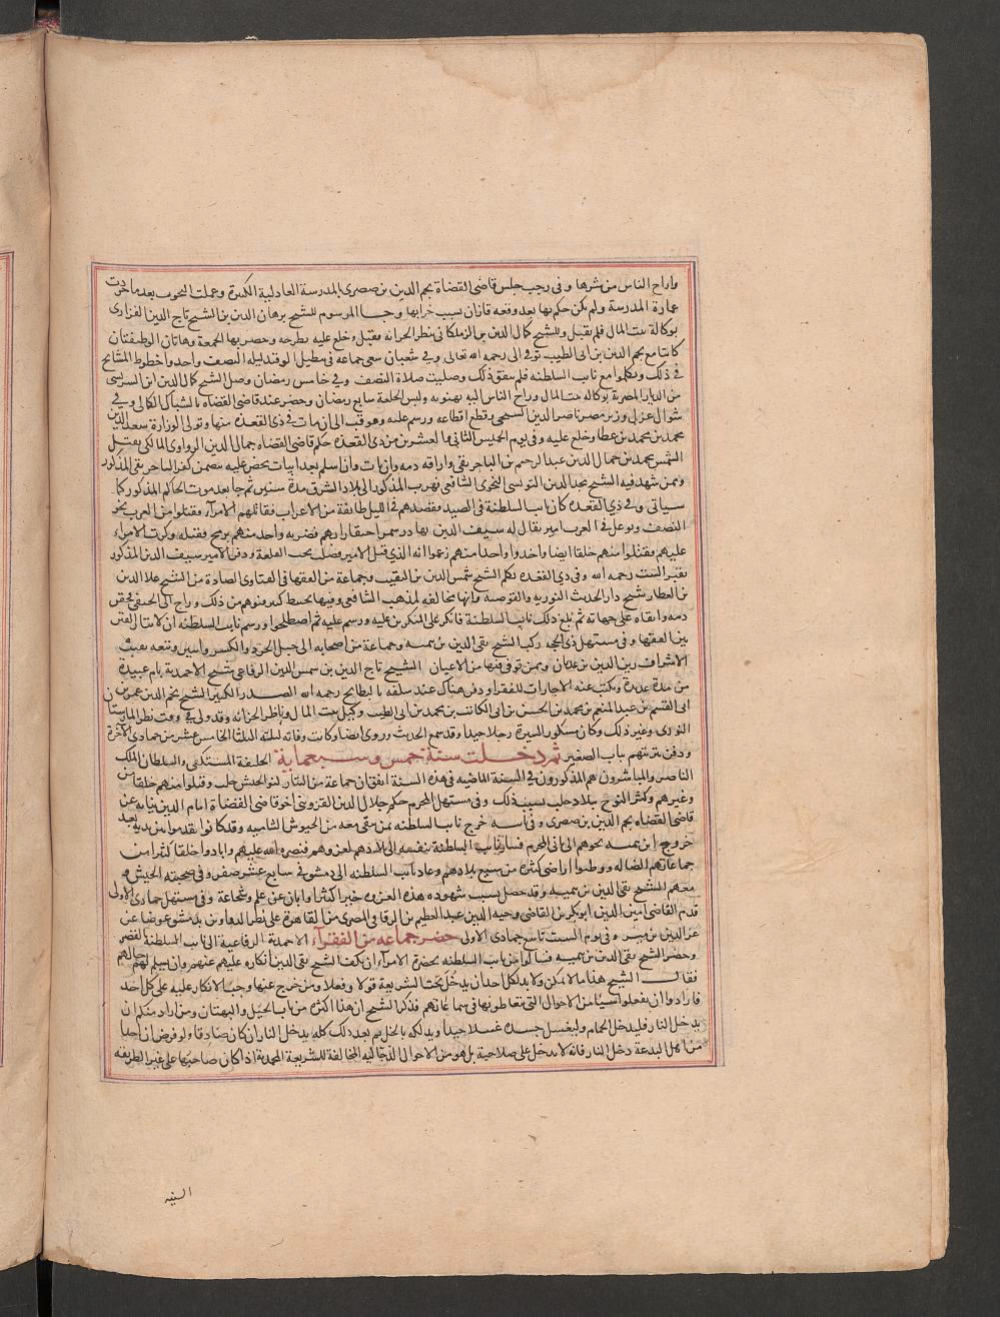 واراح الناس من شرها وفى رجب جلس قاضى القضاة نجم الدين بن صصرى بالمدرسة العادلية الكبيرة وعملت التخوت بعد ما جردت
عمارة المدرسة ولم يكن حكم بها بعد وقعه قازان بسبب خرابها وجا المرسوم للشيخ برهان الدين بن الشيخ تاج الدين الفزارى
بوكالة بيت المال فلم يقبل وللشيخ كمال الدين بن الزملكانى بنظر الخزانه فقبل وخلع عليه بطرحه وحضر بها الجمعة وهاتان الوظيفتان
كانتا مع نجم الدين بن ابى الطيب توفى الى رحمه الله تعالى وفى شعبان سعى جماعه فى تبطيل الوقيد ليله النصف واخذوا خطوط المشايخ
فى ذلك وتكلموا مع نايب السلطنه فلم يتفق ذلك وصليت صلاة النصف وفى خامس رمضان وصل الشيخ كمال الدين ابن الشريشى
من الديار المصرية بوكاله بيت المال وراح الناس اليه يهنونه ولبس الخلعة سابع رمضان وحضر عند قاضى القضاه بالشباك الكمالى وفى
شوال عزل وزير مصر ناصر الدين الشيحى وقطع اقطاعه ورسم عليه وعوقب الى ان مات فى ذى القعده منها وتولى الوزارة سعد الدين
محمد بن محمد بن عطا وخلع عليه وفى يوم الخميس الثانى والعشرين من ذى القعده حكم قاضى القضاه جمال الدين الزواوى المالكى بقتل
الشمس محمد بن جمال الدين عبد الرحيم بن الباجريقى واراقه دمه وان تاب وان اسلم بعد اثبات محضر عليه يتضمن كفر الباجريقى المذكور
وممن شهد فيه الشيخ مجد الدين التونسى النحوى الشافعى فهرب المذكور الى بلاد الشرق مدة سنين ثم جا بعد موت الحاكم المذكور كما
سياتى وفى ذى القعده كان نايب السلطنة فى الصيد فقصدهم فى الليل طايفة من الاعراب فقاتلهم الامراء وقتلوا من العرب نحو
النصف وتوغل فى العرب امير يقال له سيف الدين بهادر احتقارا بهم فضربه واحد منهم برمح فقتله وكرت الامراء
عليهم فقتلوا منهم خلقا ايضا واخذوا واحدا منهم زعموا انه الذى قتل الامير فصلب تحت القلعة ودفن الامير سيف الدين المذكور
بقبر الست رحمه الله وفى ذى القعده تكلم الشيخ شمس الدين بن النقيب وجماعة من الفقها فى الفتاوى الصادرة من الشيخ علا الدين
بن العطار شيخ دار الحديث النوريه والقوصيه وانها مخالفه لمذهب الشافعى وفيها تخبيط كثير وتوهم من ذلك وراح الى الحنفى فحقن
دمه وابقاه على جهاته ثم بلغ ذلك نايب السلطنة فانكر على المنكرين عليه ورسم عليه ثم اصطلحوا ورسم نايب السلطنه ان لا تثار الفتن
بين الفقها وفى مستهل ذى الحجه ركب الشيخ تقى الدين بن تيميه وجماعة من اصحابه الى جبل الجرد والكسروانيين ومعه نقيب
الاشراف زين الدين بن عدنان وممن توفى فيها من الاعيان الشيخ تاج الدين بن شمس الدين الرفاعى شيخ الاحمدية بام عبيدة
من مدة عديدة وتكتب عنه الاجازات للفقرا ودفن هناك عند سلفه بالبطايح رحمه الله الصدر الكبير الشيخ نجم الدين عمر بن
ابى القسم بن عبد المنعم بن محمد بن الحسن بن ابى الكتايب بن محمد بن ابى الطيب وكيل بيت المال وناظر الخزانه وقد ولى فى وقت نظر المارستان
النورى وغير ذلك وكان مشكور السيرة رجلا جيدا وقد سمع الحديث وروى ايضا وكانت وفاته ليلة الثلثا الخامس عشر من جمادى الاخرة
ودفن بتربتهم بباب الصغير ثم دخلت سنة خمس وسبعماية الخليفة المستكفى والسلطان الملك
الناصر والمباشرون هم المذكورون فى السنة الماضيه فى هذه السنة اتفق ان جماعة من التتار كبسوا لجيش حلب وقتلوا منهم خلقا من
وغيرهم وكثر النوح ببلاد حلب بسبب ذلك وفى مستهل المحرم حكم جلال الدين القزوينى اخو قاضى القضاة امام الدين نيابه عن
قاضى القضاه نجم الدين بن صصرى وفى ثانيه خرج نايب السلطنه بمن بقى معه من الجيوش الشاميه وقد كانوا تقدموا بين يديه بعد
خروج ابن تيميه نحوهم الى ثانى المحرم فسار نايب السلطنة بنفسه الى بلادهم لغزوهم فنصره الله عليهم وابادوا خلقا كثيرا من
جماعاتهم الضاله ووطئوا اراضى كثيرة من منيع بلادهم وعاد نايب السلطنه الى دمشق فى سابع عشر صفر وفى صحبته الجيش
معهم الشيخ تقى الدين بن تيميه وقد حصل بسبب شهوده هذه الغزوه خير كثير وابان عن علم وشجاعة وفى مستهل جمادى الاولى
قدم القاضى امين الدين ابو بكر بن القاضى وجيه الدين عبد العظيم بن الرقاقى المصرى من القاهرة على نظر الدواوين بدمشق عوضا عن
عز الدين بن مبسر وفى يوم السبت تاسع جمادى الاولى حضر جماعه من الفقراء الاحمدية الرفاعية الى نايب السلطنة بالقصر
وحضر الشيخ تقى الدين بن تيميه فسالوا من نايب السلطنه بحضرة الامراء ان يكف الشيخ تقى الدين انكاره عليهم عنهم وان يسلم لهم حالهم
فقال الشيخ هذا ما لا يمكن ولا بد لكل احد ان يدخل تحت الشريعة قولا وفعلا ومن خرج عنها وجب الانكار عليه على كل احد
فارادوا ان يفعلوا شيئا من الاحوال التى يتعاطونها فى سماعاتهم فذكر الشيخ ان هذا اكثره من باب الحيل والبهتان ومن اراد منكم ان
يدخل النار فليدخل الحمام وليغسل جسده غسلا جيدا ويدلكه بالخل ثم بعد ذلك كله يدخل النار ان كان صادقا ولو فرض ان احدا
من اهل البدعة دخل النار فانه لا يدل على صلاحيه بل هو من الاحوال الدجاليه المخالفة للشريعة المحمدية اذا كان صاحبها على غير الطريقه
السنيه